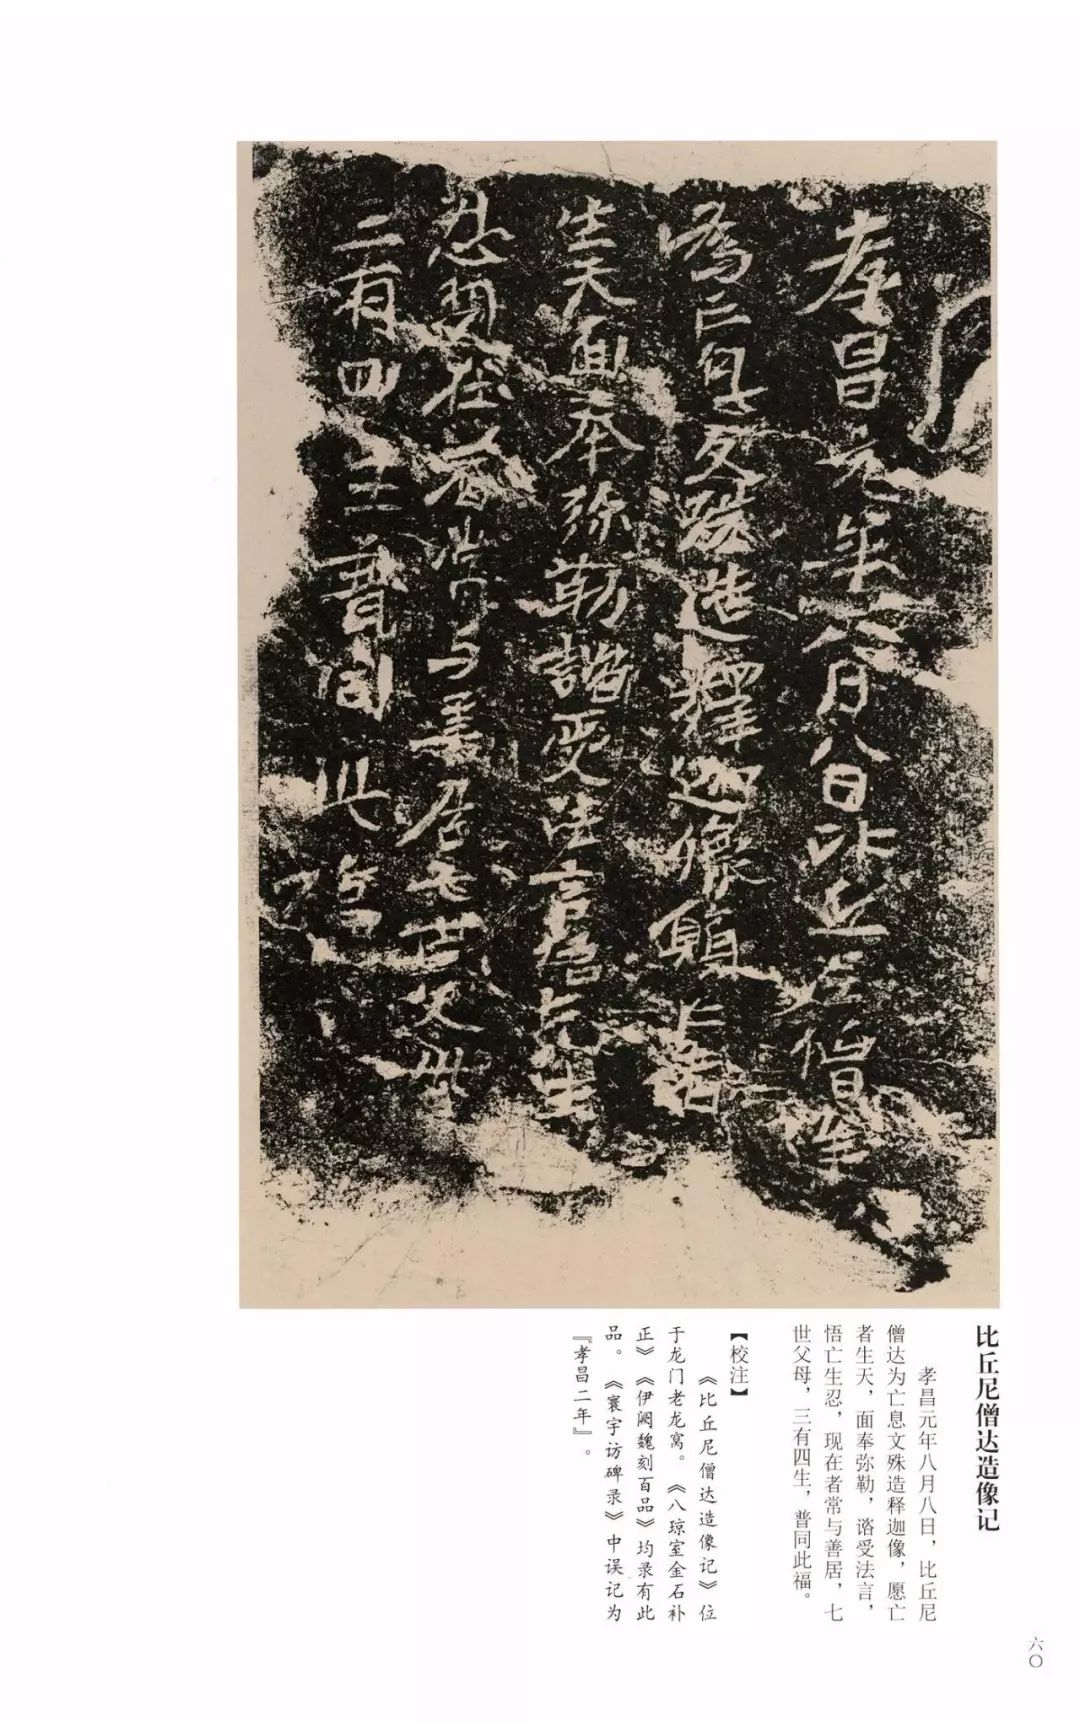 孝昌元年八月八日比丘尼僧達
為亡息文殊造釋迦像願亡者
生天面奉弥勒諮受法言悟亡生
忍現在者常与善居七世父母
三有四生普同此福
比丘尼僧达造像记
孝昌元年八月八日，比丘尼
僧达为亡息文殊造释迦像，愿亡
者生天，面奉弥勒，谘受法言，
悟亡生忍，现在者常与善居，七
世父母，三有四生，普同此福。
【校注】
《比丘尼僧达造像记》位
于龙门老龙窝。《八琼室金石补
正》《伊阙魏刻百品》均录有此
品。《寰宇访碑录》中误记为
『孝昌二年』。
六〇